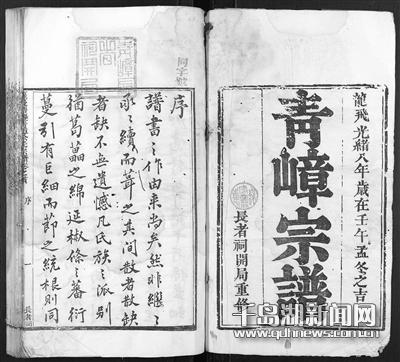 龍飛光緒八年歲在壬午孟冬之吉
青嶂宗譜
長者祠開局重修
同字號
序
譜書之作由來尚矣然非繼〻
承〻續而葺之其間散者散缺
者缺不無遺憾凡氏族之派別
猶葛藟之綿延椒條之蕃衍
蔓引有巨細而節之統根則同
序
一
千岛湖新闻网
www.qdhnews.com.cn